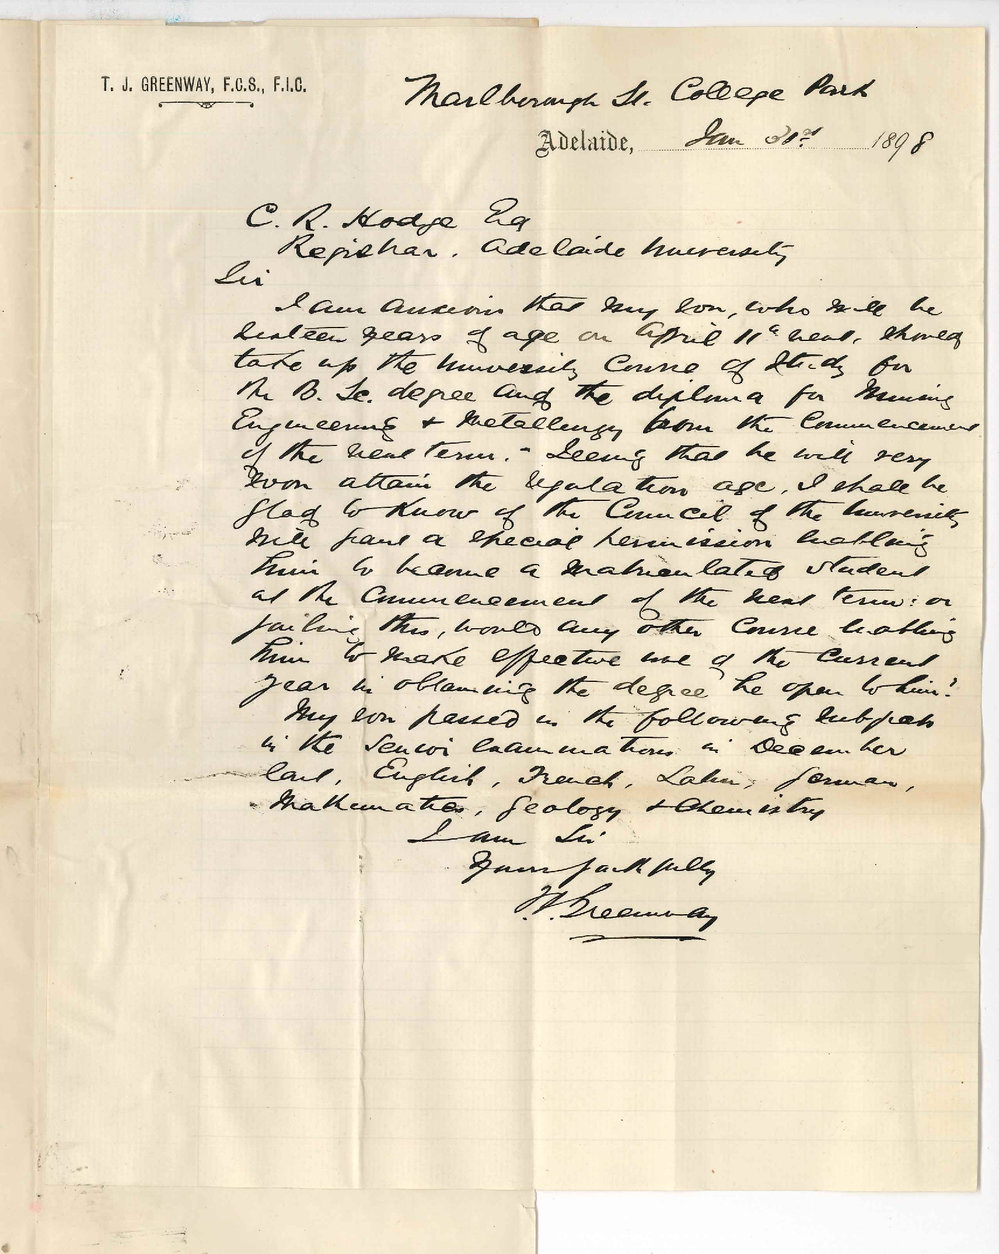 T. J. GREENWAY, F.C.S., F.I.C.
Marlborough St. College Park
Adelaide, Jan 31st 1898
C. R. Hodge Esq
Registrar. Adelaide University
Sir
I am anxious that my son, who will be
sixteen years of age on April 11th next, should
take up the University Course of Study for
the B. Sc. degree and the diploma for Mining
Engineering & Metallurgy from the Commencement
of the next term. - Seeing that he will very
soon attain the regulation age, I shall be
glad to know if the Council of the University
will grant a special permission enabling
him to become a matriculated student
at the Commencement of the next term: or
failing this, would any other Course enabling
him to make effective use of the current
year in obtaining the degree be open to him?
My son passed in the following subjects
in the Senior Examinations in December
last, English, French, Latin, German,
Mathematics, Geology & Chemistry
I am Sir
Yours faithfully
T. J. Greenway